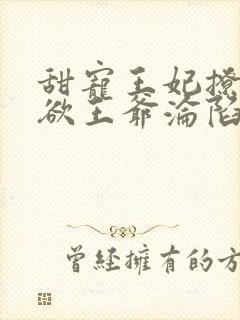 甜寵王妃撩
欲王爺淪陷
曾經擁有的方